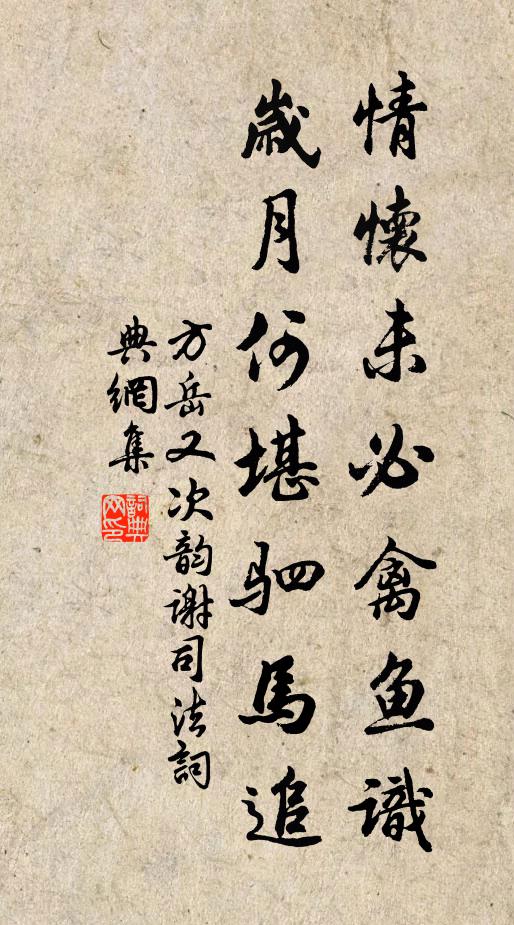 情懷未必禽鱼識
歲月何堪駟馬追
方岳又次韵谢司法詞
典網集
詞典网印